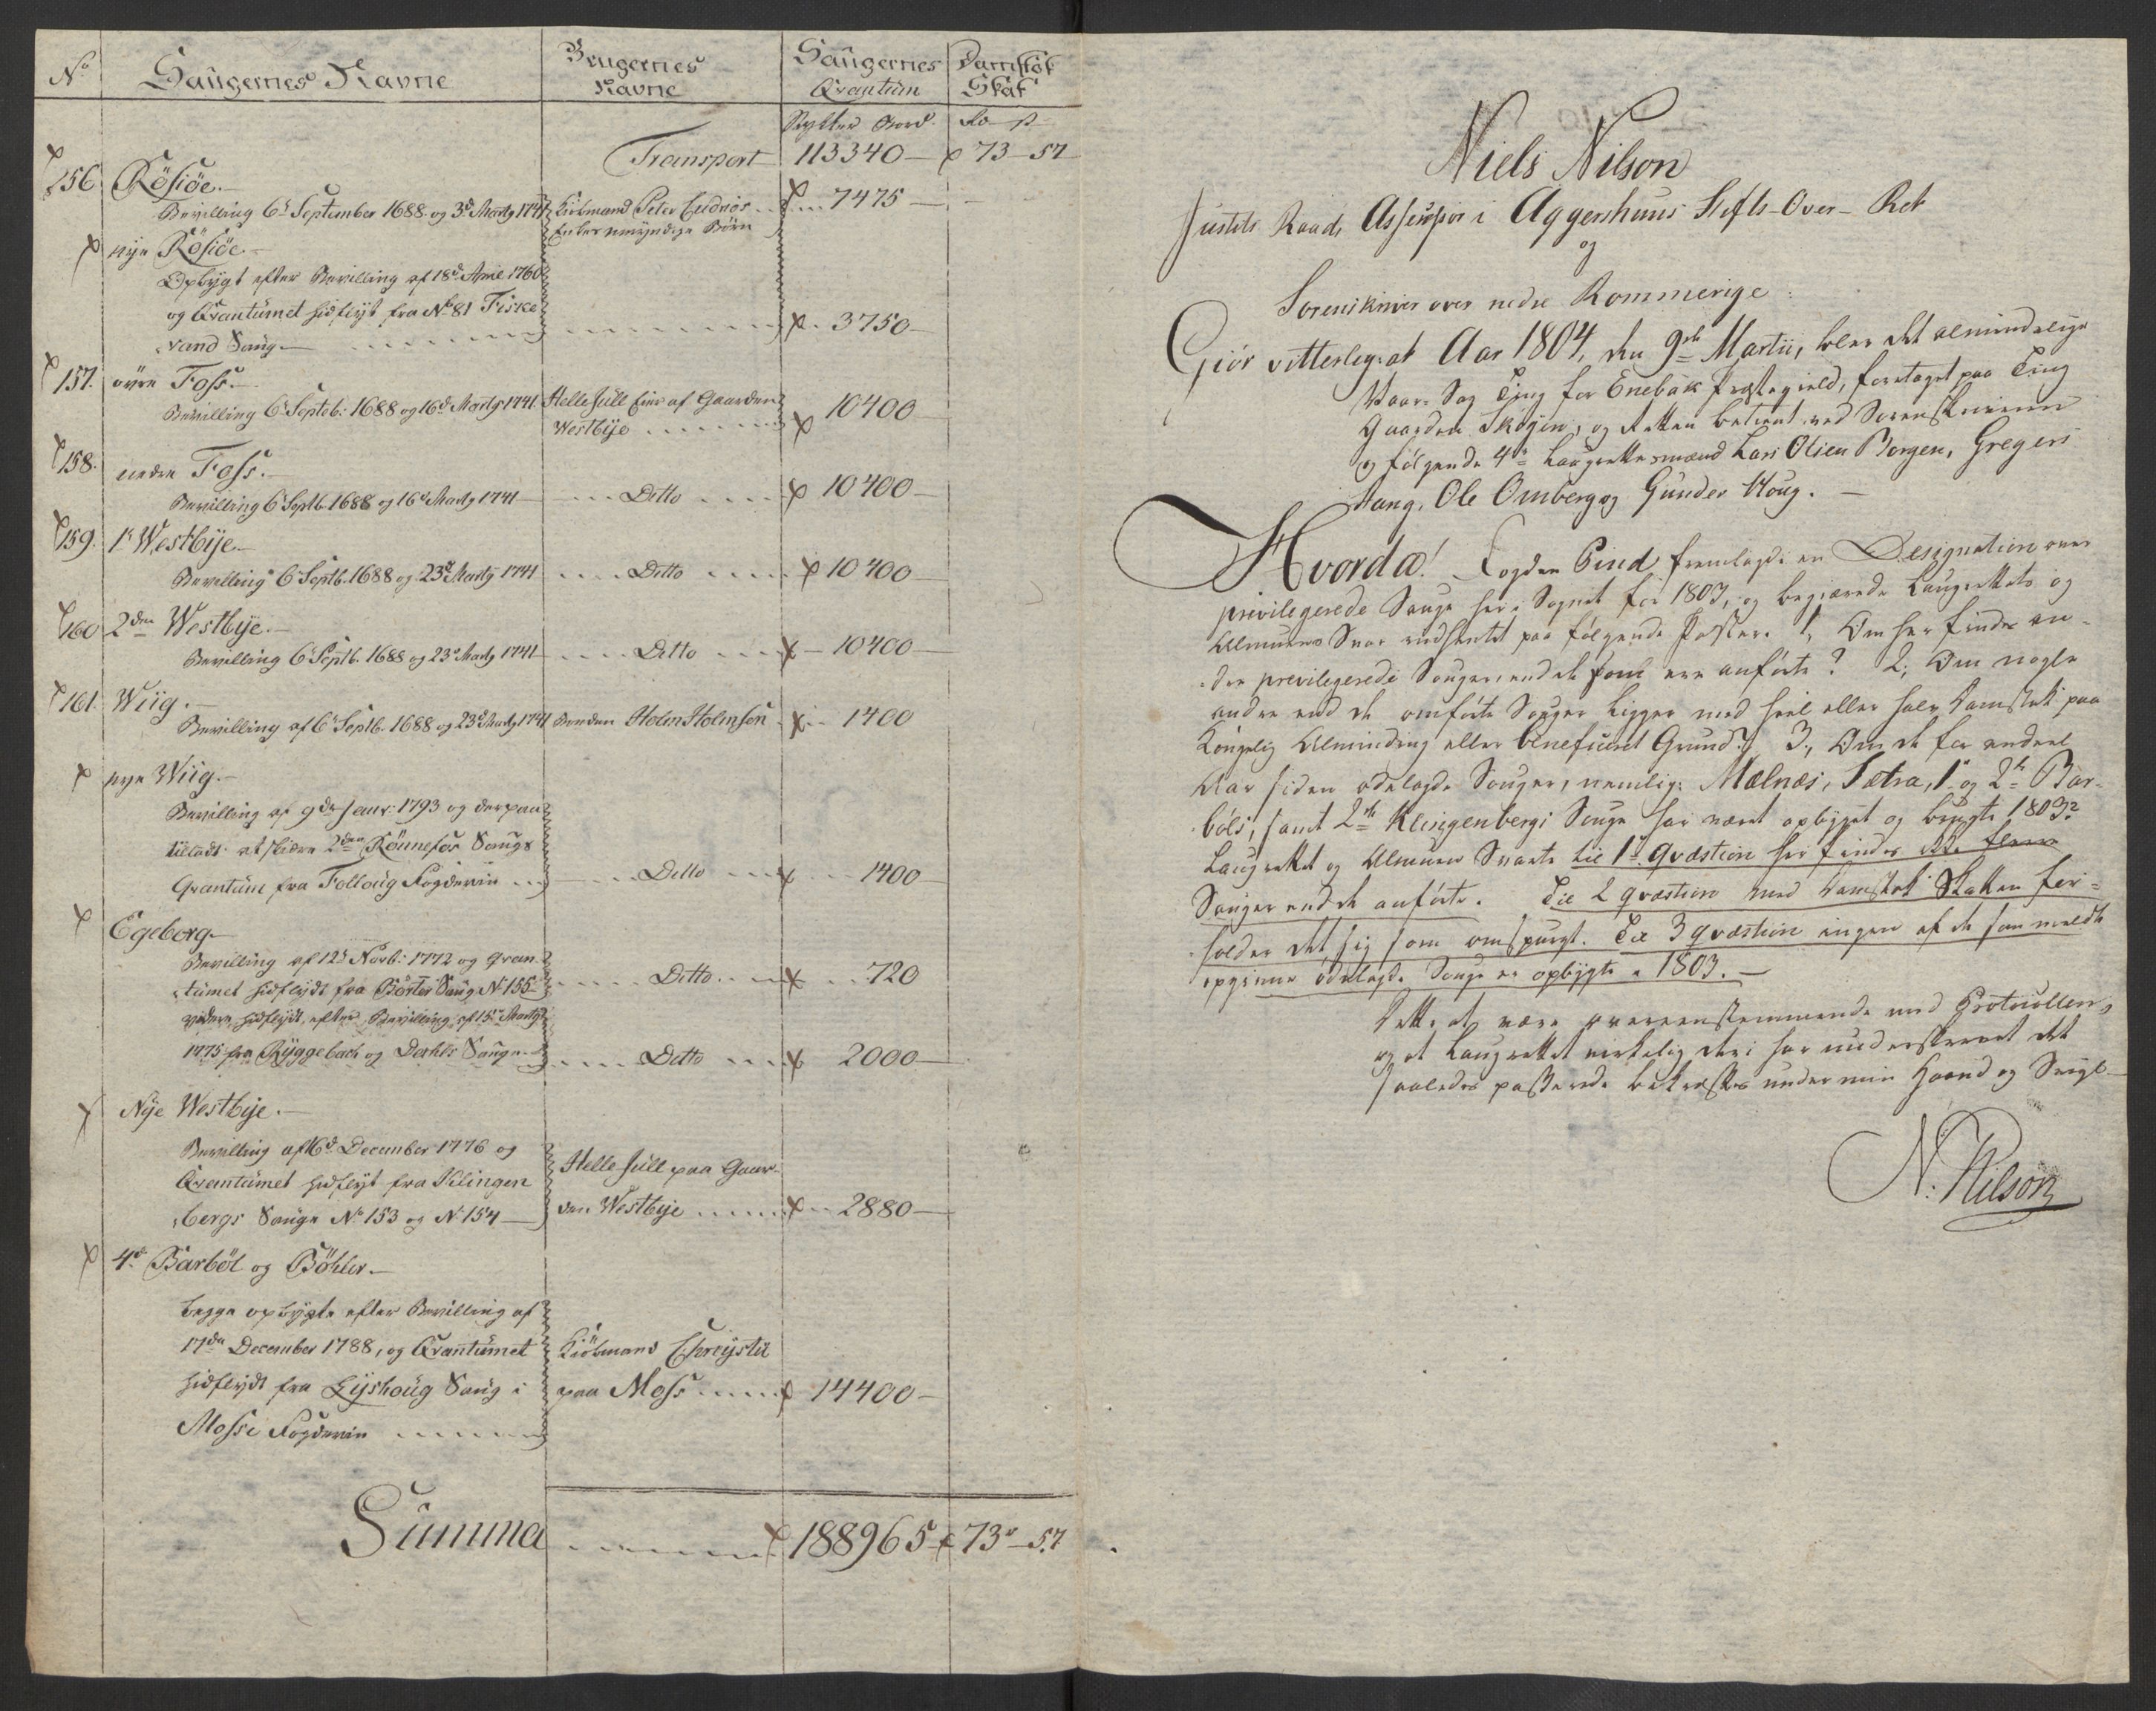 No Saugernes Navne Brugernes Navne Saugernes Qvantum Damstok Skat
Transport 113340 73 57
156. Rösiöe.
Bevilling 6d September 1688 og 3d Martj 1741 Kiöbmand Peter 7475
umyndige Börn
nye Rösiöe
Opbygt efter Bevilling af 18d April 1760
og Qvantumet hidflyt fra No 81 Fiske
vand Saug 3750
157. övre Foss.
Bevilling 6 Septeb: 1688 og 16d Martj 1741 Helle Jull Eier af Gaarden
Westbye 10400
158. nedre Foss.
Bevilling 6 Septb. 1688 og 16d Martj 1741 Ditto 10400
159. 1te Westbije
Bevilling 6 Septb. 1688 og 23d Martij 1741 Ditto 10400
160 2den Westbije.
Bevilling 6 Septb. 1688 og 23d Martj 1741 Ditto 10400
161. Wiig.
Bevilling af 6 Septb. 1688 og 23d Martj 1741 Bonden Holm Holmsen 1400
nye Wiig.
Bevilling af 9de Janv: 1793 og derpaa
tilladt at skiöre 2den Rönnefos Saugs
Qvantum fra Folloug Fogderie Ditto 1400
Egeborg
Bevilling af 12d Novb: 1772 og Qvan
tumet hidflydt fra Börter Saug No 155 Ditto 720
videre hidflydt efter Bevilling af 15 Martj
1775 fra Ryggebach og Dahls Sauge Ditto 2000
Nye Westbije.
Bevilling af 6d December 1776 og
Qvantumet hidflyt fra Klingen Helle Jull paa Gaar
bergs Sauge No 153 og No 154 den Westbije 2880
4de Barböl og Böhler.
begge opbygte efter Bevilling af
17de December 1788, og Qvantumet Kiöbmand Chrystie
hidflydt fra Lyshoug Saug i paa Moss 14400
Mosse Fogderie
Summa 188965 73 57
Niels Nilson
Justits Raad, Assessor i Aggershuus Stifts-Over-Ret
og
Sorenskriver over nedre Rommerige
Giör vitterlig: at Aar 1804, den 9de Martii, blev det almindelige
Vaar- Sag Ting for Enebak Præstegield, foretaget paa Ting
Gaarden Sköyen, og Retten betient ved Sorenskriveren
og fölgende 4re Laugrettesmænd Lars Olsen Borgen, Gregers
Hang, Ole Omberg og Gunder Houg.
Hvorda! Fogden Bind fremlagde en Designation over
privilegerede Sauge her i Sognet for 1803, og begiærede Laugrettets og
Almuens Svar indhentet paa fölgende Poster. 1, Om her findes an-
dre previlegerede Sauger, end de som ere anförte? 2, Om nogle
andre end de omförte Sauger Ligger med heel eller halv Damstok paa
Kongelig Alminding eller Beneficeret Grund? 3, Om de for endeel
Aar siden ödelagde Sauger, nemlig: Mælnæs, Sætra, 1te og 2de Bar-
böls, samt 2de Klingenbergs Sauge har været opbygget og brugte 1803?
Laugrettet og Almuen Svarte til 1te Qvæstion her findes ikke flere
Sauger end de anförte. Til 2 qvæstion med Damstok Skatten for-
holder det sig som omspurgt. Til 3 qvæstion ingen af de sammeldte
ödelagde Sauge er opbygte i 1803.
Dette at være overeensstemmende med Protocollen,
og at Laugrettet virkelig deri har underskrevet det
saaledes passerede bekræftes under min Haand og Seigl
N: Nilson